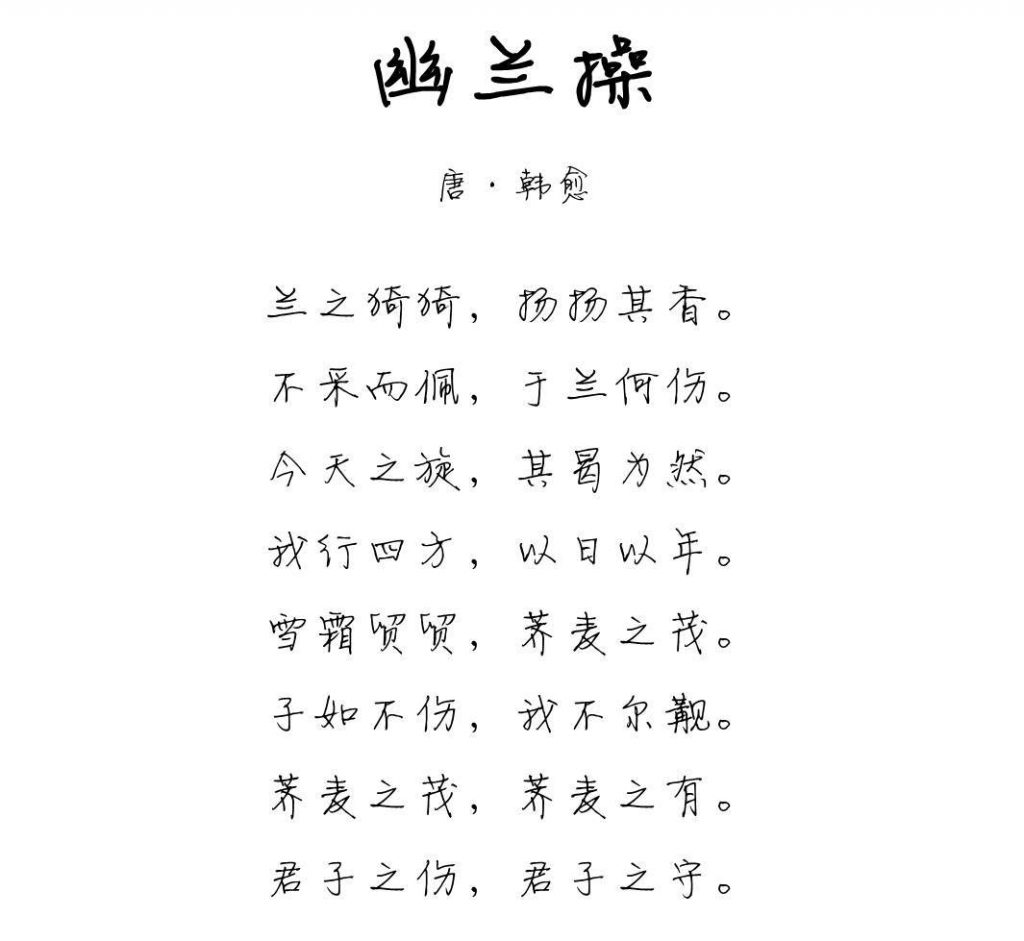 幽兰操
唐·韩愈
兰之猗猗，扬扬其香。
不采而佩，于兰何伤。
今天之旋，其曷为然。
我行四方，以日以年。
雪霜贸贸，荞麦之茂。
子如不伤，我不尔觏。
荞麦之茂，荞麦之有。
君子之伤，君子之守。